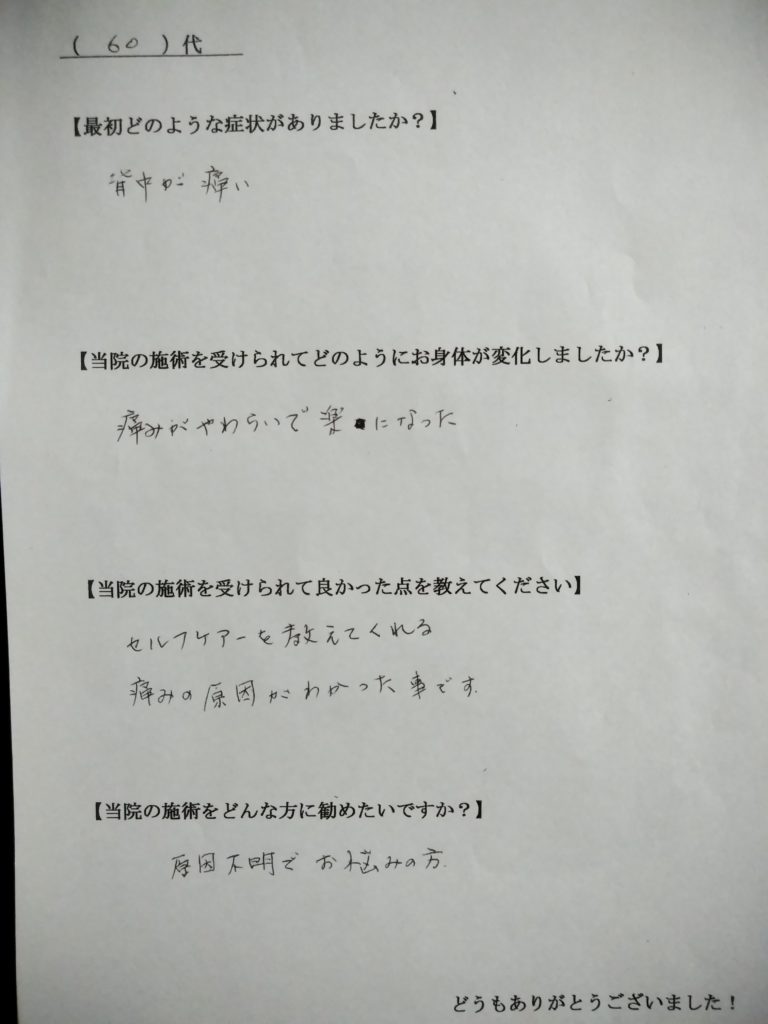 ( 60 )代
【最初どのような症状がありましたか？】
背中が痛い
【当院の施術を受けられてどのようにお身体が変化しましたか？】
痛みがやわらいで楽になった
【当院の施術を受けられて良かった点を教えてください】
セルフケアーを教えてくれる
痛みの原因がわかった事です.
【当院の施術をどんな方に勧めたいですか？】
原因不明でお悩みの方.
どうもありがとうございました！